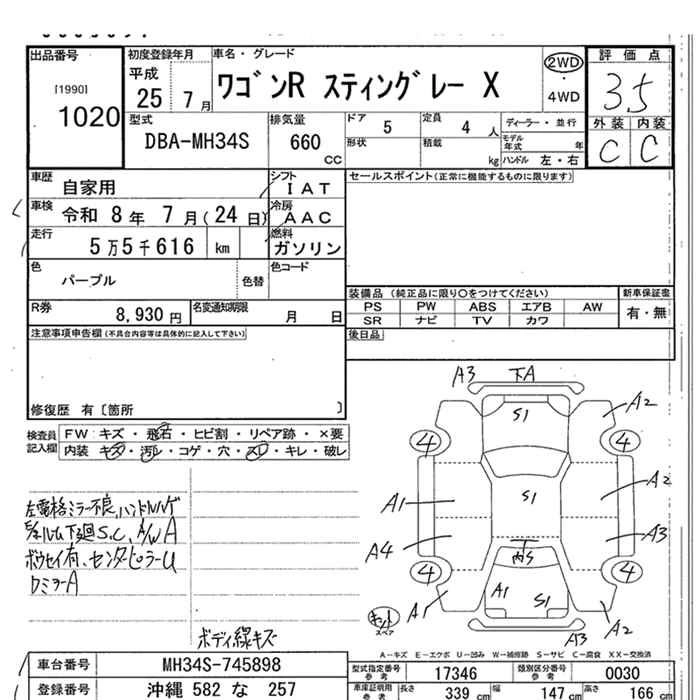 出品番号 初度登録年月 車名・グレード 評価点
[1990] 平成 ワゴンR スティングレー X 2WD 3.5
1020 25 7月 4WD
型式 排気量 ドア 定員 ディーラー・並行 外装 内装
DBA-MH34S 660 CC 5 4人 モデル年式 年 C C
形状 積載 kg ハンドル 左・右
車歴 自家用 シフト IAT セールスポイント(正常に機能するものに限ります)
車検 令和 8年 7月(24日) 冷房 AAC
走行 5万5千616 km 燃料 ガソリン
色 パープル 色替 色コード
装備品 (純正品に限り○をつけてください) 新車保証書
R券 8,930円 名変通知期限 月 日 PS PW ABS エアB AW 有・無
SR ナビ TV カワ
注意事項申告欄(不具合内容等は具体的に記入して下さい) 後日品
修復歴 有〔箇所 〕
検査員記入欄 FW:キズ・飛石・ヒビ割・リペア跡・×要
内装 キズ・汚レ・コゲ・穴・スレ・キレ・破レ
A3 下A
S1 A2
4 4
左電格ミラー不良、ハンドル
A1 S1 A2
下廻S.C、A/W A
A4 A3
ボウセイ有、センターピラーU
内S
ロミラーA
4 A1 S1 4
A1 A2
キット
スペア
A3
ボディ線キズ
A−キズ E−エクボ U−凹み W−補修跡 S−サビ C−腐食 XX−交換済
車台番号 MH34S-745898 型式指定番号 参考 17346 類別区分番号 参考 0030
登録番号 沖縄 582 な 257 車庫証明用 参考 長さ 339 cm 幅 147 cm 高さ 166 cm